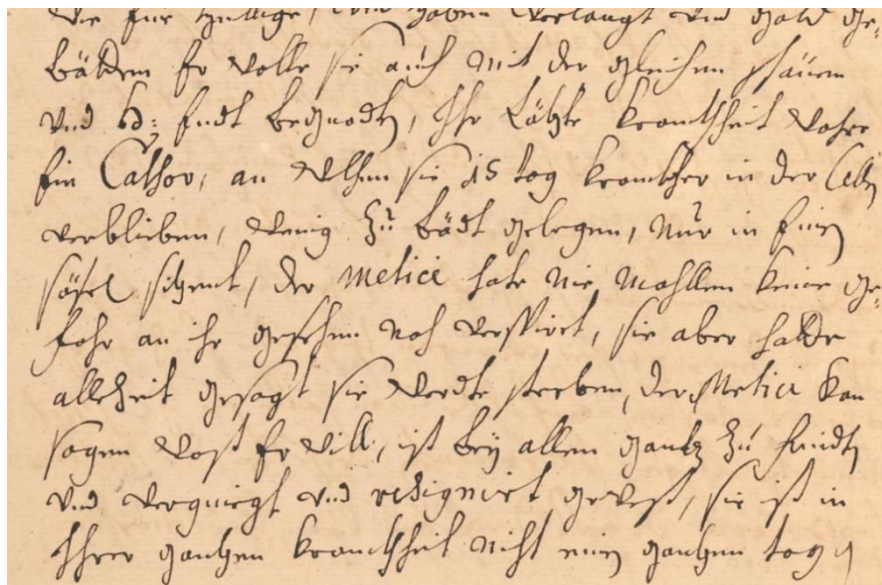 die für heilige, von haben verlangt und Gott ge=
bätten Er wolle sie auch mit der gleichen
und hl: Endt begnadten, Ihr Lätzte kranckheit wahre
Ein Cathar, an Welhen sie 15 tag krancker in der Cellen
verblieben, wenig zu bädt gelegen, nur in Einen
säsel sitzent, der Metici hate nie mahllen keine ge=
fahr an ihr gesehen noh verspirt, sie aber hatte
allezeit gesagt sie werdte sterben, der Metici kan
sagen wass Er will, ist bey allen gantz zu friden
und vergniegt und resignirt gewest, sie ist in
Ihrer gantzen kranckheit niht einen gantzen tag